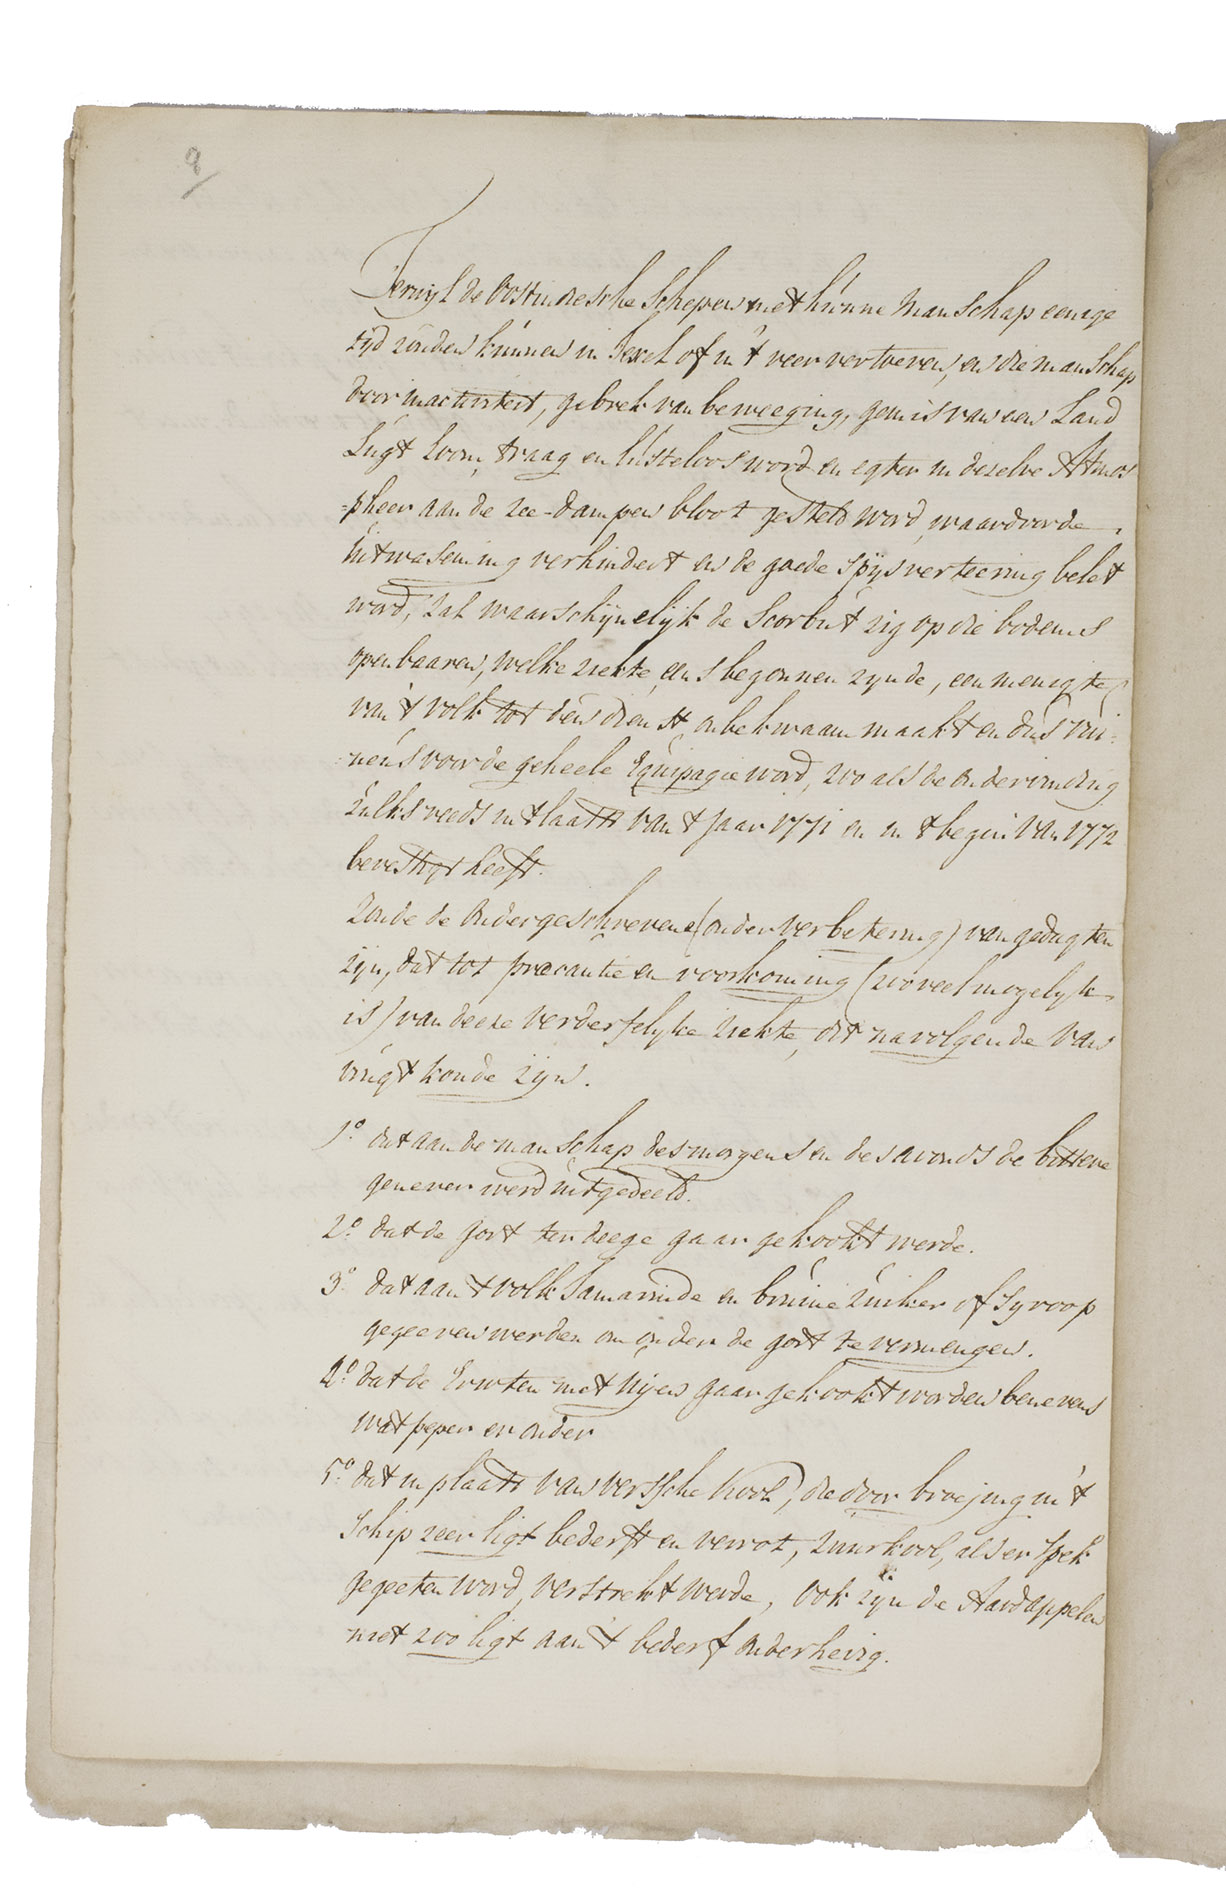 8
Terwijl de Oostindesche Schepen met hunne Manschap eenige
tijd zouden kunnen in Texel of in 't veer vertoeven, en die manschap
door inactiviteit, gebrek van beweeging, gemis van een Land
Lugt loom, traag en lusteloos word en egter in dezelve Atmos
=pheer aan de zee-dampen bloot gesteld word, waardoor de
Uitwaseming verhindert en de goede spijsverteering belet
word, zal waarschijnelijk de Scorbut zig op die bodems
openbaaren, welke ziekte, eens begonnen zijnde, een menigte
van 't volk tot den dienst onbekwaam maakt en dus rui-
=neus voor de geheele Equipagie word, zoo als de ondervinding
zulks reeds in 't laatst van 't Jaar 1771 en in 't begin van 1772
bevestigt heeft.
Zoude de ondergeschrevene (onder verbetering) van gedagten
zijn, dat tot precautie en voorkoming (zoo veel mogelyk
is) van deeze verderfelyke ziekte, dit navolgende van
vrugt konde zijn.
1.º dat aan de manschap des morgens en des avonds de bittere
genever werd uitgedeeld.
2.º dat de gort ter deege gaar gekookt werde.
3.º dat aan 't volk Tamarinde en bruine Zuiker of Syroop
gegeeven werden om onder de gort te vermengen.
4.º dat de Erwten met Uijen gaar gekookt worden benevens
wat peper er onder
5.º dat in plaats van versche kool, die door broejing in 't
Schip zeer ligt bederft en verrot, zuurkool, als er spek
gegeeten word, verstrekt werde, ook zijn de Aardappelen
niet zoo ligt aan 't bederf onderhevig.